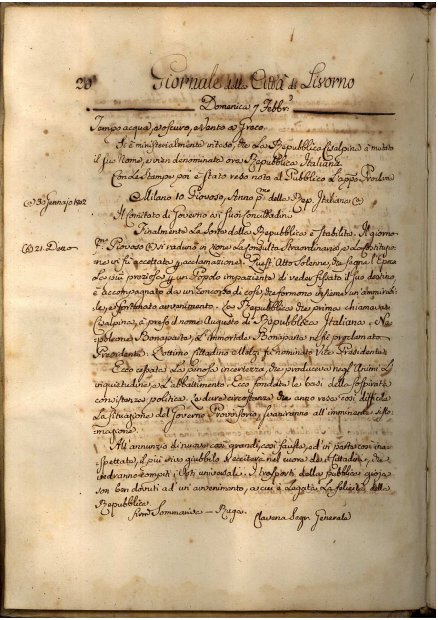 20
Giornale della Città di Livorno
Domenica 7 Febbr.º
Tempo acqua, e oscuro, e Vento a Greco.
Si è ministerialmente inteso, che la Repubblica Cisalpina à mutato
il suo Nome, e vien denominata ora Repubblica Italiana.
Con le Stampe poi è stato reso noto al Pubblico l'app.º Proclama
(a) 30 Gennajo 1802
Milano 10 Piovoso, Anno p.mo della Rep. Italiana (a)
Il Comitato di Governo a i suoi Concittadini
Finalmente la Sorte della Repubblica è Stabilita. Il giorno
(b) 21. Detto
p.mo Piovoso (b) si radunò in Lione la Consulta Straordinaria, e la Costituzio-
ne vi fu accettata per acclamazione. Quest'Atto Solenne, che segna l'Epoca
la più preziosa, a un Popolo impaziente di veder fissato il suo destino,
è accompagnato da un Concorso di cose, che formono insieme un'ammirabi-
le, e fortunato avvenimento. La Repubblica che prima chiamavasi
Cisalpina, à preso il nome Augusto di Repubblica Italiana, Na-
poleone Bonaparte, l'immortale Bonaparte ne fu proclamato
Presidente. L'ottimo Cittadino Melzi fu nominato Vice Presidente.
Ecco cessata la penosa incertezza, che produceva negl'Animi l'in-
quietudine, e l'abbattimento. Ecco fondate le basi della sospirata
consistenza politica. Le dure circostanze che anzo rese così difficile
la situazione del Governo Provvisorio, svaniranno all'imminente isto-
mazione.
All'annunzio di nuove così grandi, così fauste, ed in parte così ina-
spettate, il più vivo giubbilo s'ecciterà nel cuore de i Cittadini, che
vedranno compiti i Voti universali. I trasporti della pubblica gioja
son ben dovuti ad un avvenimento, a cui è Legata la felicità della
Repubblica.
Firm. Sommariva — Ruga.
Clavena Segr. Generale